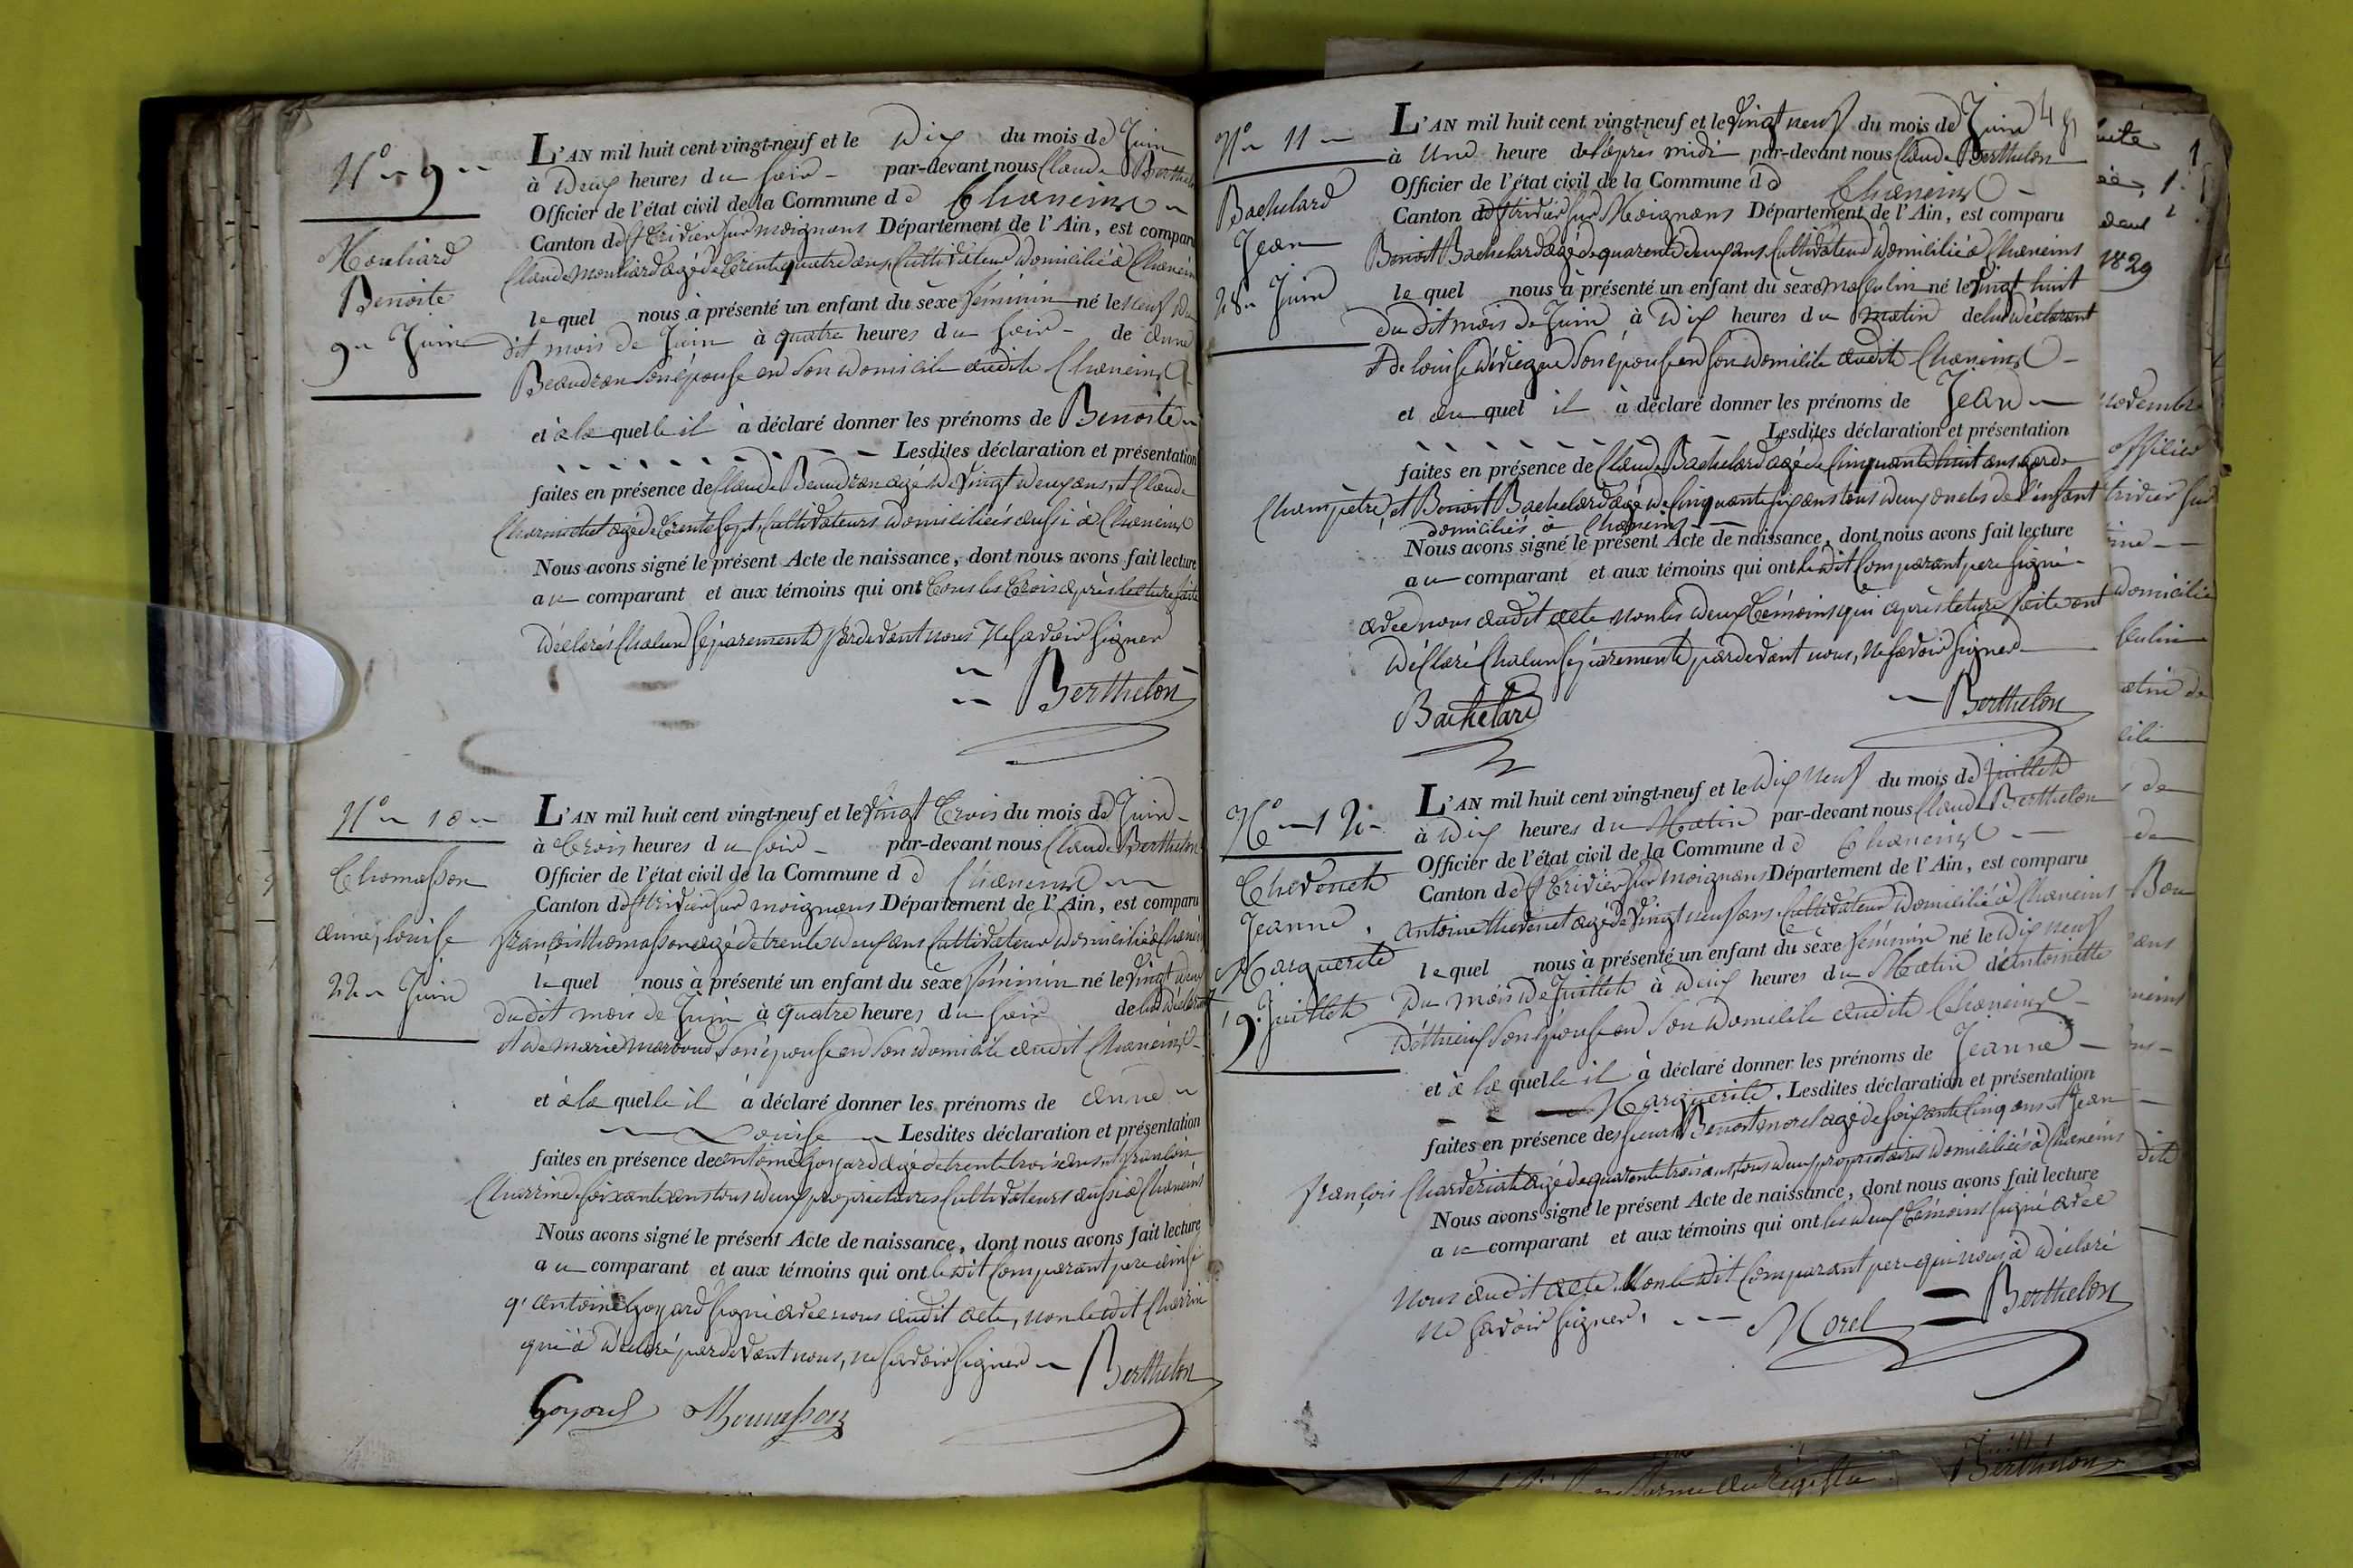 N.o 9
Mouliard
Benoite
9 Juin
L'AN mil huit cent vingt-neuf et le Dix du mois de Juin
à Deux heures du soir par-devant nous Claude Berthelon
Officier de l'état civil de la Commune de Chaneins
Canton de St Trivier sur moignans Département de l'Ain, est comparu
Claude Mouliard agé de trente quatre ans, Cultivateur domicilié à Chaneins
lequel nous à présenté un enfant du sèxe féminin né le neuf du
dit mois de Juin à quatre heures du soir de Anne
Beaudran son épouse en son domicile audit Chaneins
et à la quelle il à déclaré donner les prénoms de Benoite
Lesdites déclaration et présentation
faites en présence de Claude Beaudran agé de vingt deux ans, et Claude
Charnichet agé de trente sept, Cultivateurs domiciliés aussi à Chaneins
Nous avons signé le présent Acte de naissance, dont nous avons fait lecture
au comparant et aux témoins qui ont tous les trois après lecture faite
déclarés Chacun séparement pardevant nous Ne savoir signer
Berthelon
N.o 10
Thomasson
anne, louise
22 Juin
L'AN mil huit cent vingt-neuf et le vingt trois du mois de Juin
à trois heures du soir par-devant nous Claude Berthelon
Officier de l'état civil de la Commune de Chaneins
Canton de St trivier sur moignans Département de l'Ain, est comparu
françois thomasson agé de trente deux ans Cultivateur domicilié à Chaneins
lequel nous à présenté un enfant du sèxe féminin né le vingt deux
dudit mois de Juin à quatre heures du soir de lui déclarant
et de marie marboud son épouse en son domicile audit Chaneins
et à la quelle il à déclaré donner les prénoms de anne
Louise Lesdites déclaration et présentation
faites en présence de antoine Goyard agé de trente trois ans, et françois
Charrin de soixante ans tous deux propriétaires Cultivateurs aussi à Chaneins
Nous avons signé le présent Acte de naissance, dont nous avons fait lecture
au comparant et aux témoins qui ont le dit Comparant pere ainsi
q' antoine Goyard signé avec nous audit acte, non le dit Charrin
qui à déclaré pardevant nous, ne savoir signer
Berthelon
Goyard Thomasson
N.o 11
Bachelard
Jean
28 Juin
L'AN mil huit cent vingt-neuf et le vingt neuf du mois de Juin
à Une heure de l'après midi par-devant nous Claude Berthelon
Officier de l'état civil de la Commune de Chaneins
Canton de St trivier sur Moignans Département de l'Ain, est comparu
Benoit Bachelard agé de quarente deux ans Cultivateur domicilié à Chaneins
lequel nous à présenté un enfant du sèxe masculin né le vingt huit
du dit mois de Juin à Dix heures du matin de lui déclarant
et de louise son épouse en son domicile audit Chaneins
et au quel il à déclaré donner les prénoms de Jean
Lesdites déclaration et présentation
faites en présence de Claude Bachelard agé de Cinquante huit ans garde
Champètre, et Benoit Bachelard agé de Cinquante six ans tous deux oncles de l'enfant
domiciliés à Chaneins
Nous avons signé le présent Acte de naissance, dont nous avons fait lecture
au comparant et aux témoins qui ont le dit Comparant pere signé
avec nous audit acte non les deux témoins qui après lecture faite ont
déclaré Chacun séparement, pardevant nous, ne savoir signer
Bachelard Berthelon
N.o 12
Thevenet
Jeanne
Marguerite
19 Juillet
L'AN mil huit cent vingt-neuf et le Dix neuf du mois de Juillet
à Dix heures du Matin par-devant nous Claude Berthelon
Officier de l'état civil de la Commune de Chaneins
Canton de St Trivier sur moignans Département de l'Ain, est comparu
antoine thevenet agé de vingt neuf ans Cultivateur domicilié à Chaneins
lequel nous à présenté un enfant du sèxe féminin né le Dix neuf
Du mois de Juillet à Deux heures du Matin de Antoinette
son épouse en son domicile audit Chaneins
et à la quelle il à déclaré donner les prénoms de Jeanne
Marguerite. Lesdites déclaration et présentation
faites en présence des sieurs Benoit morel agé de soixante Cinq ans et Jean
françois Charderiat agé de quarente trois ans, tous deux propriétaires domiciliés à Chaneins
Nous avons signé le présent Acte de naissance, dont nous avons fait lecture
au comparant et aux témoins qui ont les deux témoins signé avec
Nous audit acte Non le dit Comparant pere qui nous à déclaré
ne savoir signer.
Morel Berthelon
1829
novembre
officier
trivier sur
domicilié
Berthelon